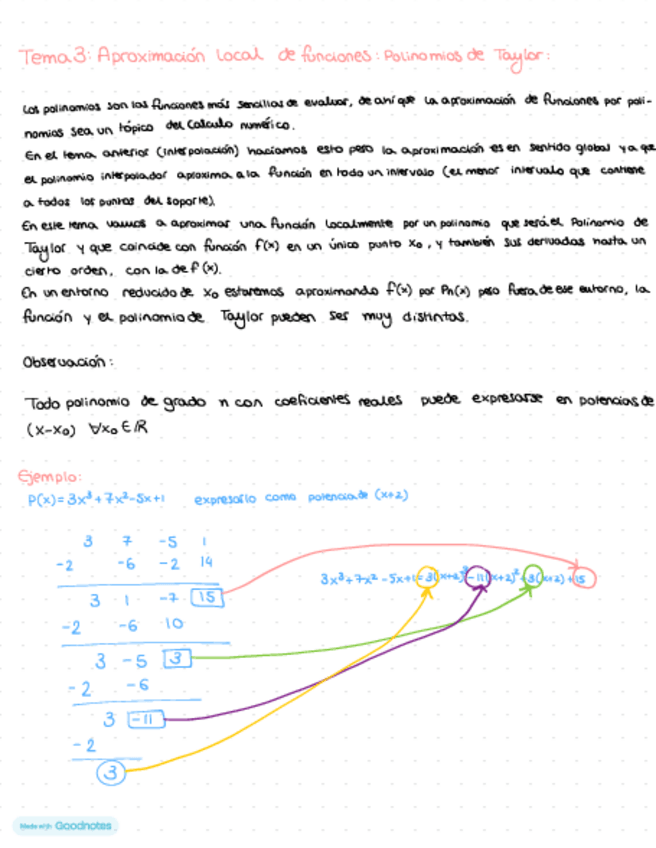 Tema 3: Aproximación Local de funciones: Polinomios de Taylor:
Los polinomios son las funciones más sencillas de evaluar, de ahí que la aproximación de funciones por poli-
nomios sea un tópico del Calculo numérico.
En el tema anterior (interpolación) hacíamos esto pero la aproximación es en sentido global ya que
el polinomio interpolador aproxima a la función en todo un intervalo (el menor intervalo que contiene
a todos los puntos del soporte).
En este tema vamos a aproximar una función localmente por un polinomio que será el Polinomio de
Taylor y que coincide con función f(x) en un único punto x₀, y también sus derivadas hasta un
cierto orden, con la de f(x).
En un entorno reducido de x₀ estaremos aproximando f(x) por Pn(x) pero fuera de ese entorno, la
función y el polinomio de Taylor pueden ser muy distintas.
Observación:
Todo polinomio de grado n con coeficientes reales puede expresarse en potencias de
(x-x₀) ∀x₀ ∈ ℝ
Ejemplo:
P(x)=3x³+7x²-5x+1 expresarlo como potencia de (x+2)
3 7 -5 1
-2 -6 -2 14
3x³+7x²-5x+1=3(x+2)³-11(x+2)²+3(x+2)+15
3 1 -7 15
-2 -6 10
3 -5 3
-2 -6
3 -11
-2
3
Made with Goodnotes